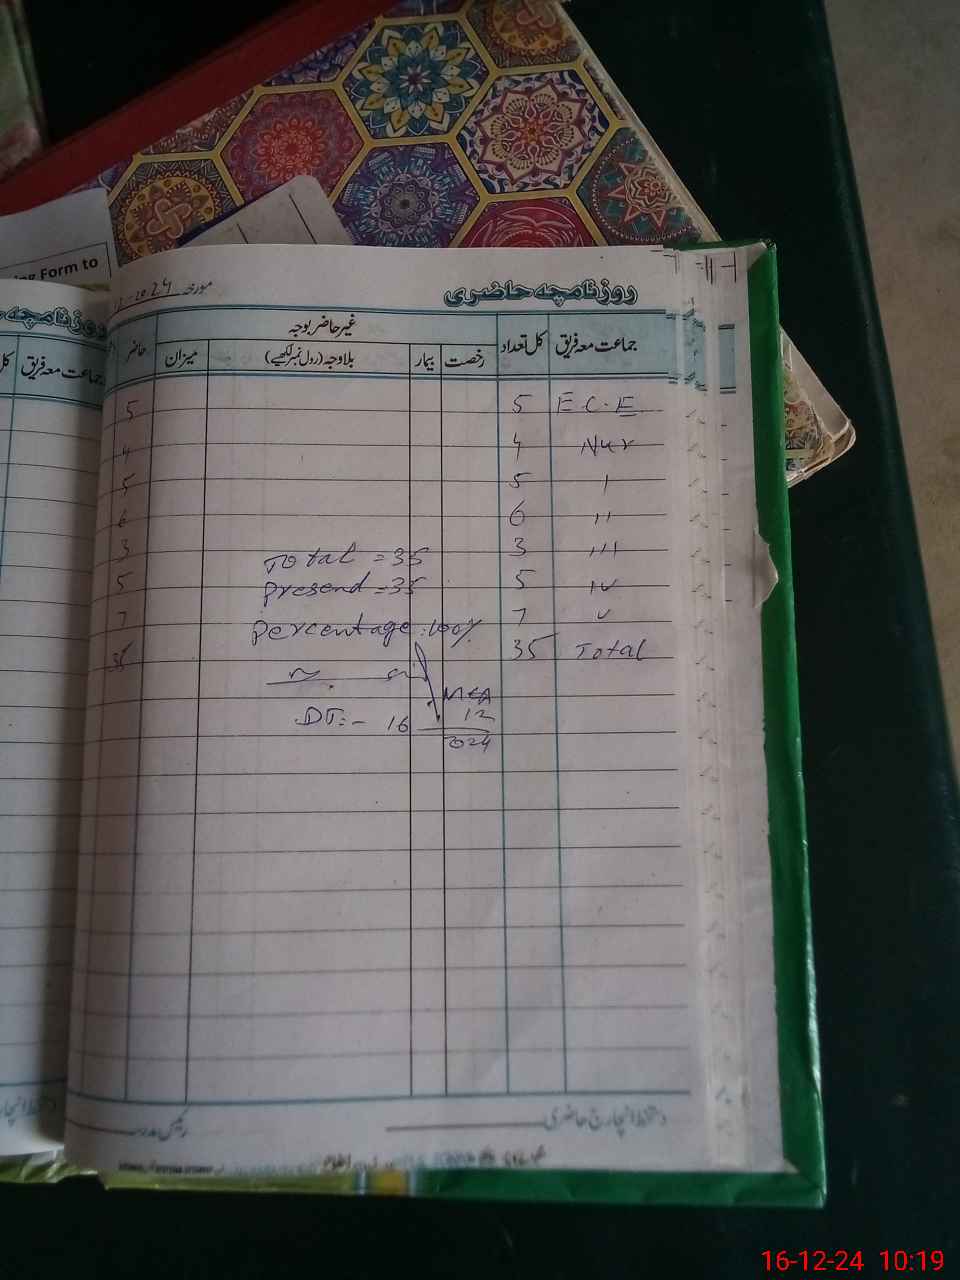 ng Form to
روزنامچہ حاضری
مورخہ 12-2024
جماعت معہ فریق کل تعداد غیر حاضر بوجہ حاضر
رخصت بیمار بلاوجہ (رول نمبر لکھیے) میزان
E C.E 5 5
Nur 4 4
I 5 5
II 6 6
III 3 3
IV 5 5
V 7 7
Total 35 35
Total = 35
Presend = 35
Percentage : 100%
MEA
DT:- 16 12 2024
دستخط انچارج حاضری
رئیس مدرسہ
روزنامچہ
جماعت معہ فریق
16-12-24 10:19